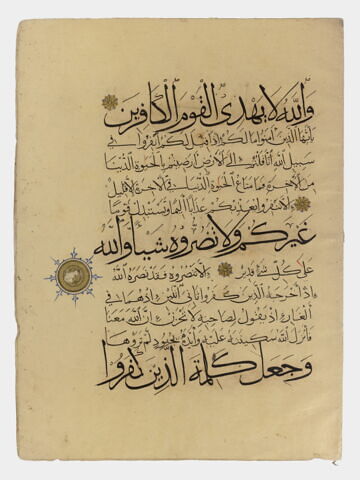 والله لا يهدى القوم الكافرين
يا أيها الذين آمنوا ما لكم إذا قيل لكم انفروا في
سبيل الله اثاقلتم إلى الأرض أرضيتم بالحيوة الدنيا
من الآخرة فما متاع الحيوة الدنيا في الآخرة إلا قليل
إلا تنفروا يعذبكم عذابا أليما ويستبدل قوما
غيركم ولا تضروه شيئا والله
على كل شيء قدير إلا تنصروه فقد نصره الله
إذ أخرجه الذين كفروا ثاني اثنين إذ هما في
الغار إذ يقول لصاحبه لا تحزن إن الله معنا
فأنزل الله سكينته عليه وأيده بجنود لم تروها
وجعل كلمة الذين كفروا